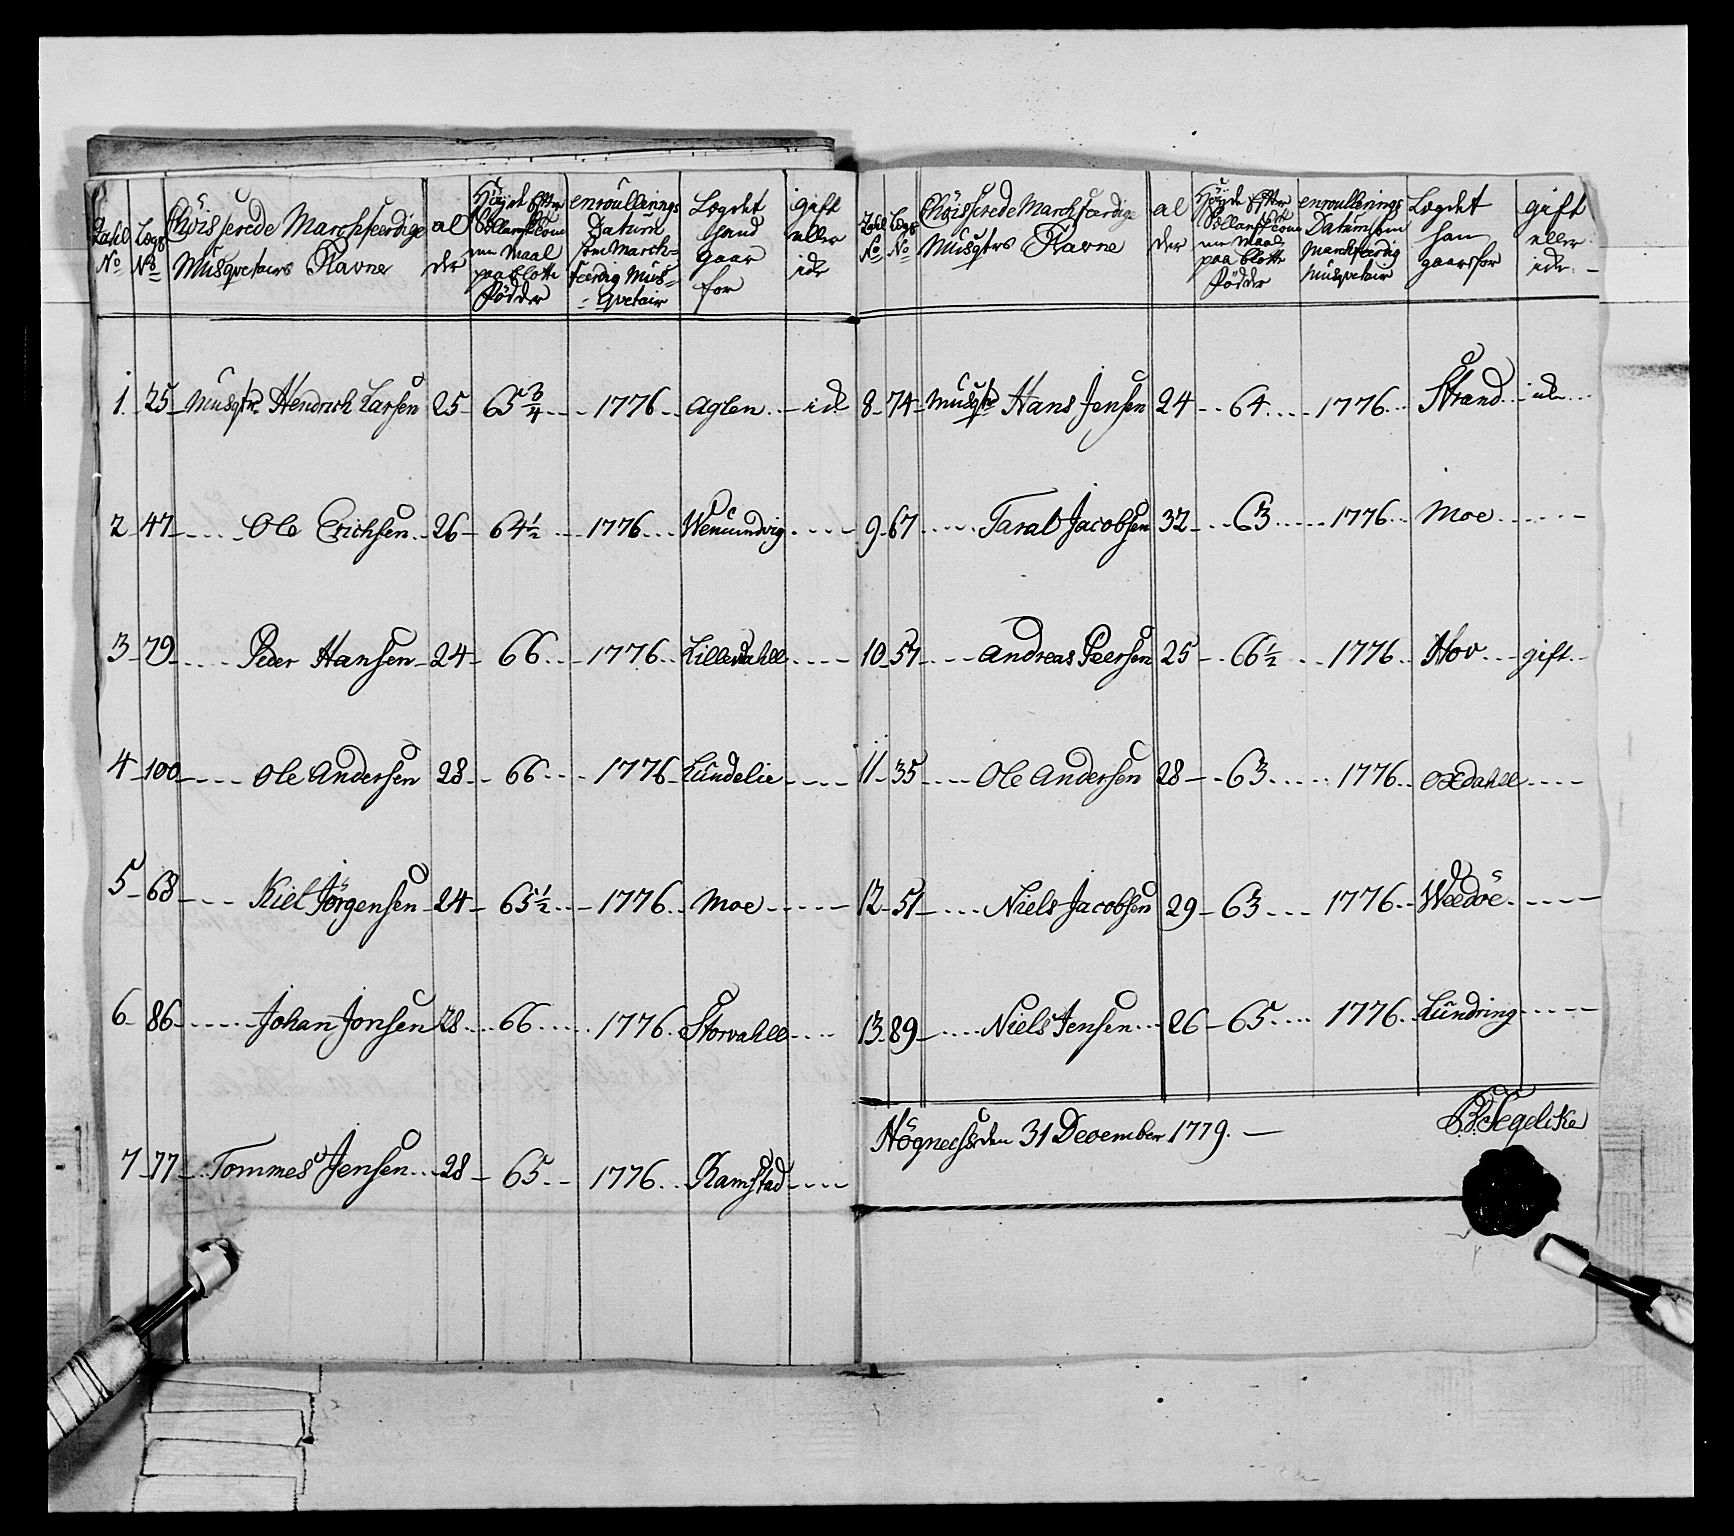 Tahl No
Legs No
Choisserede Marchfærdige Musqvetairs Navne
al der
Høyde efter maal paa blotte Fødder
enroullerings Datum som Marchfærdig Musqvetair
Lægdet hand gaar for
gift eller icke
1. 25 Musqtr Hendrich Larsen 25 65 3/4 1776 Aglen icke
2 47 Ole Erichsen 26 64 1/2 1776 Wemundvig
3 79 Peder Hansen 24 66 1776 Lillevahll
4 100 Ole Andersen 28 66 1776 Lundelie
5 68 Kiel Jörgensen 24 65 1/2 1776 Moe
6 86 Johan Jonsen 28 66 1776 Storvahll
7 77 Tommes Jensen 28 65 1776 Ramstad
Tahl No
Legs No
Choisserede Marchfærdige Musqtrs Navne
al der
Høyde efter maal paa blotte Fødder
enroullerings Datum som Marchfærdig Musqvetair
Lægdet han gaar for
gift eller icke
8 74 Musqtr Hans Jensen 24 64 1776 Strand icke
9 67 Taral Jacobsen 32 63 1776 Moe
10 57 Andreas Peersen 25 66 1/2 1776 Hov gift
11 35 Ole Andersen 28 63 1776 Oxdahll
12 51 Niels Jacobsen 29 63 1776 Weedöe
13 89 Niels Jensen 26 65 1776 Lundring
Högnes den 31 December 1779.